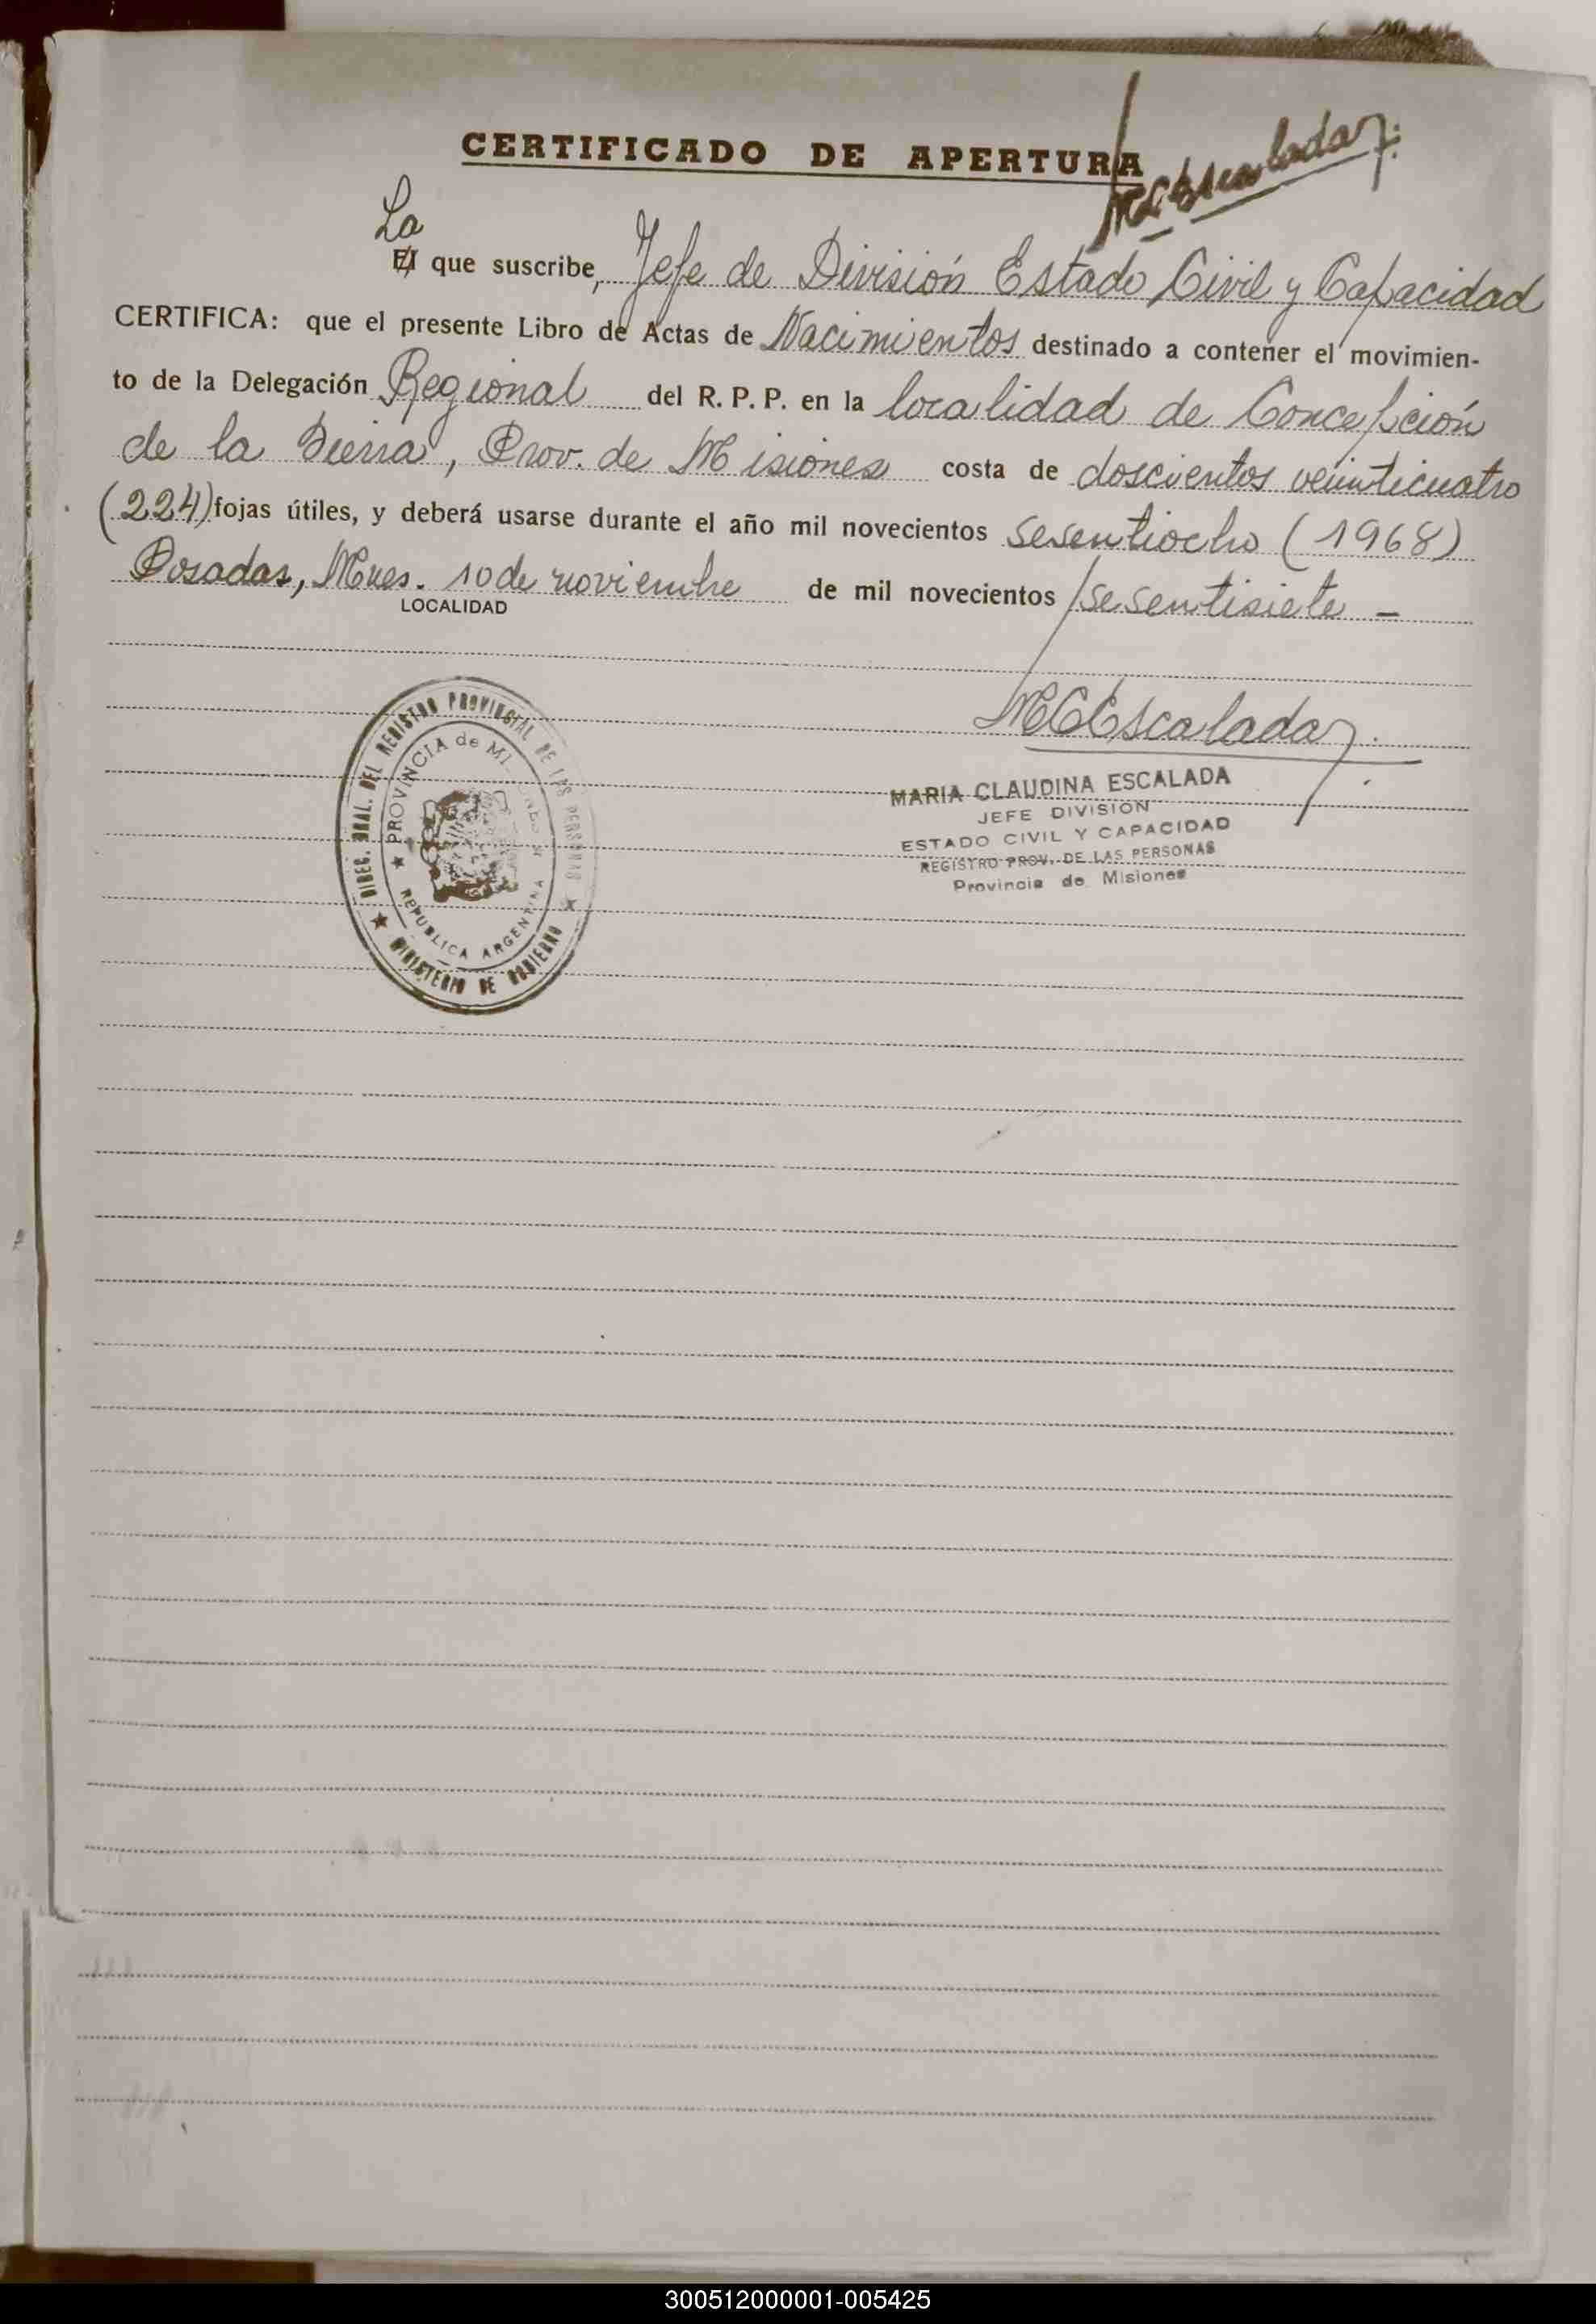 CERTIFICADO DE APERTURA
MCEscalada
La
El que suscribe, Jefe de División Estado Civil y Capacidad
CERTIFICA: que el presente Libro de Actas de Nacimientos destinado a contener el movimien-
to de la Delegación Regional del R. P. P. en la localidad de Concepción
de la Sierra, Prov. de Misiones costa de doscientos veinticuatro
(224) fojas útiles, y deberá usarse durante el año mil novecientos sesentiocho (1968)
Posadas, Mnes. 10 de noviembre de mil novecientos sesentisiete -
LOCALIDAD
MCEscalada
MARIA CLAUDINA ESCALADA
JEFE DIVISION
ESTADO CIVIL Y CAPACIDAD
REGISTRO PROV. DE LAS PERSONAS
Provincia de Misiones
DIREC. GRAL. DEL REGISTRO PROVINCIAL DE LAS PERSONAS
MINISTERIO DE GOBIERNO
PROVINCIA de MI
REPUBLICA ARGENTINA
300512000001-005425